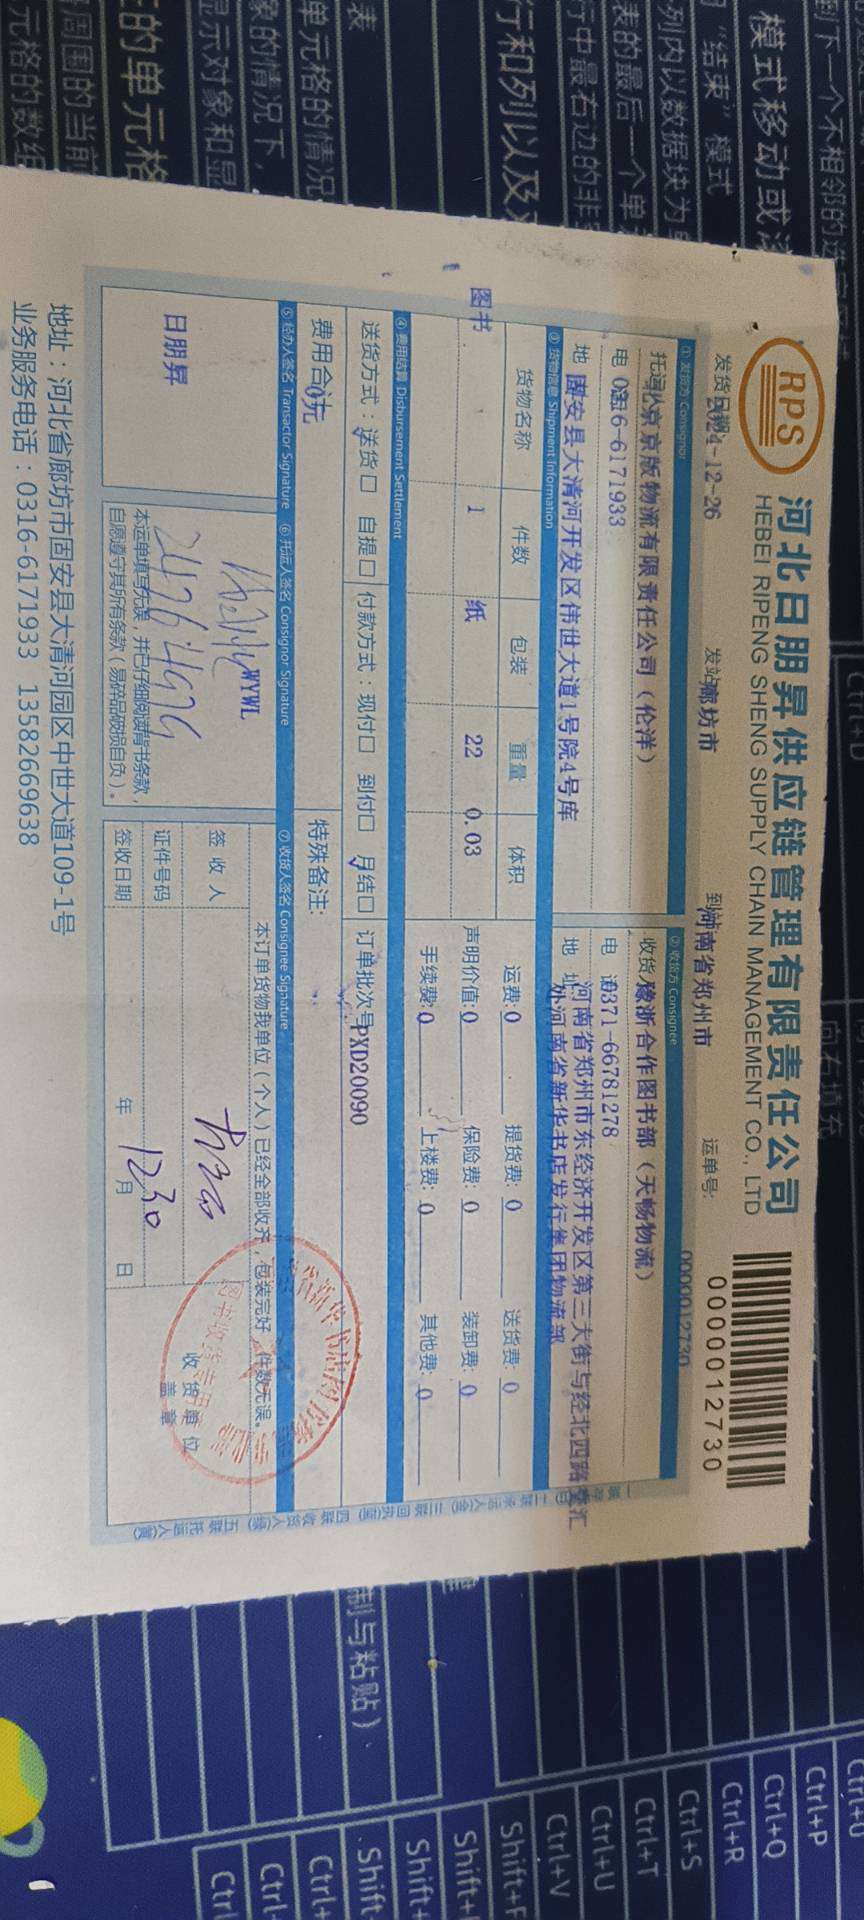 RPS
河北日朋昇供应链管理有限责任公司
HEBEI RIPENG SHENG SUPPLY CHAIN MANAGEMENT CO., LTD
0000012730
发货日期 2024-12-26 发站 廊坊市 到站 河南省郑州市 运单号: 0000012730
① 发货方 Consignor
托运 北京京版物流有限责任公司（伦洋）
电 0316-6171933
地 固安县大清河开发区伟世大道1号院4号库
② 收货方 Consignee
收货 豫浙合作图书部（天畅物流）
电 话 0371-66781278
地 址 河南省郑州市东经济开发区第三大街与经北四路交汇
外河南省新华书店发行集团物流部
③ 货物信息 Shipment Information
货物名称 件数 包装 重量 体积
图书 1 纸 22 0.03
运费: 0 提货费: 0 送货费: 0
声明价值: 0 保险费: 0 装卸费: 0
手续费: 0 上楼费: 0 其他费: 0
④ 费用结算 Disbursement Settlement
送货方式：送货□ 自提□ 付款方式：现付□ 到付□ 月结□ 订单批次号 PXD20090
费用合 0元 特殊备注:
⑤ 经办人签名 Transactor Signature ⑥ 托运人签名 Consignor Signature ⑦ 收货人签名 Consignee Signature
日朋昇
WYWL
本运单填写无误，并已仔细阅读背书条款，
自愿遵守其所有条款（易碎品破损自负）。
本订单货物我单位（个人）已经全部收齐，包装完好，件数无误。
签 收 人
证件号码
签收日期 年 12 月 30 日
收 货 单 位
盖 章
地址：河北省廊坊市固安县大清河园区中世大道109-1号
业务服务电话：0316-6171933 13582669638
二联承运人(金) 三联回执(蓝) 四联收货人(绿) 五联托运人(黄)
到下一个不相邻的选定区域
模式移动或滚
“结束”模式
列内以数据块为单
表的最后一个单
行中最右边的非
行和列以及
表
单元格的情况
象的情况下，
显示对象和
的单元格
周围的当前
元格的数组
Ctrl+D
向右填充
制与粘贴）
Ctrl+P
Ctrl+Q
Ctrl+R
Ctrl+S
Ctrl+T
Ctrl+U
Ctrl+V
Shift+F
Shift+
Shift+
Shift
Ctrl+
Ctrl
Ctrl